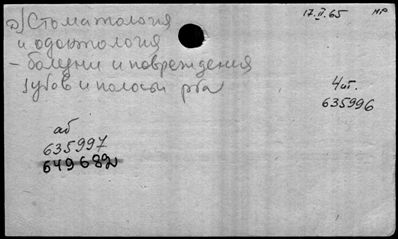 а) Стоматология
и одонтология
- болезни и повреждения
зубов и полости рта
17.II.65
нр
Чит.
635996
аб
635997
649682